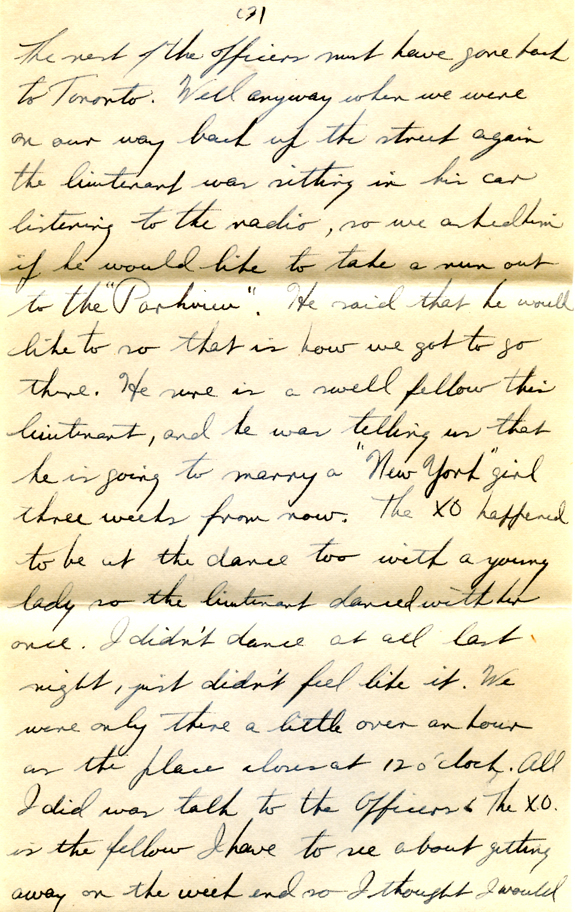 (3)
The rest of the officers must have gone back
to Toronto. Well anyway when we were
on our way back up the street again
the lieutenant was sitting in his car
listening to the radio, so we asked him
if he would like to take a run out
to the "Parkview". He said that he would
like to so that is how we got to go
there. He sure is a swell fellow this
lieutenant, and he was telling us that
he is going to marry a "New York" girl
three weeks from now. The XO happened
to be at the dance too with a young
lady so the lieutenant danced with her
once. I didn't dance at all last
night, just didn't feel like it. We
were only there a little over an hour
as the place closes at 12 o'clock. All
I did was talk to the Officers & The XO.
is the fellow I have to see about getting
away on the week end so I thought I would